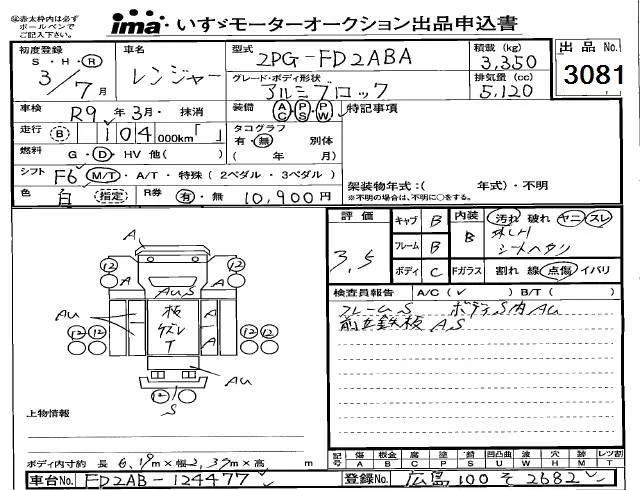 ※赤太枠内は必ずボールペンでご記入下さい
ima いすゞモーターオークション出品申込書
初度登録 S・H・R 3/7月
車名 レンジャー
型式 2PG-FD2ABA
積載(kg) 3,350
出品No. 3081
グレード・ボディ形状 アルミブロック
排気量(cc) 5,120
車検 R9年3月・抹消
装備 AC・PS・PW
特記事項
走行 B 104 000km「 」
タコグラフ 有・無 別体 ( 年 月)
燃料 G・D・HV 他( )
シフト F6 M/T・A/T・特殊(2ペダル・3ペダル)
架装物年式:( 年式)・不明
※不明の場合は、不明に○をする。
色 白 (指定) R券 有・無 10,900円
評価 3.5
キャブ B
内装 B 汚れ 破れ ヤニ スレ
シートヘタリ
フレーム B
ボディ C
Fガラス 割れ 線 点傷 イバリ
検査員報告 A/C(✓) B/T( )
フレームS ボディS内AU
前立鉄板 AS
A
12 12
AUS
AU
板
ケズレ
T
A
A
12 12 12 12
AU
12 12
S
上物情報
ボディ内寸約 長 6.19m×幅2.39m×高 m
記号 傷 A 板金 B 腐 C P 塗 P 錆 S 凹凸曲 U 波 W 穴 H 跡 M レツ割 T
車台No. FD2AB-124477
登録No. 広島 100 そ 2682